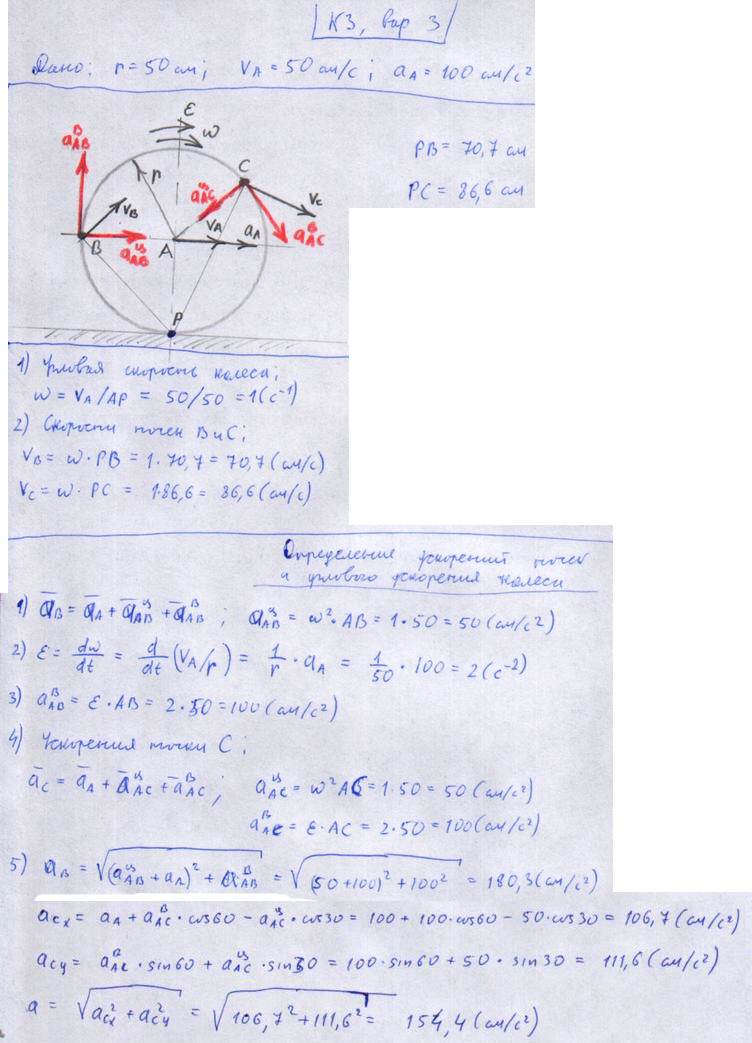 К3, вар 3
Дано: r = 50 см; VA = 50 см/с; aA = 100 см/с²
PB = 70,7 см
PC = 86,6 см
ε
ω
aᴮAB
r
C
VC
aᶜAC
VB
VA
aA
aᴮAC
B
aᶜAB
A
P
1) Угловая скорость колеса;
ω = VA/AP = 50/50 = 1(с⁻¹)
2) Скорости точек B и C;
VB = ω · PB = 1·70,7 = 70,7(см/с)
VC = ω · PC = 1·86,6 = 86,6(см/с)
Определение ускорений точек
и углового ускорения колеса
1) āB = āA + āᶜAB + āᴮAB ; aᶜAB = ω²·AB = 1·50 = 50(см/с²)
2) ε = dω/dt = d/dt (VA/r) = 1/r · aA = 1/50 · 100 = 2(с⁻²)
3) aᴮAB = ε·AB = 2·50 = 100(см/с²)
4) Ускорения точки C;
āC = āA + āᶜAC + āᴮAC ; aᶜAC = ω²AC = 1·50 = 50(см/с²)
aᴮAC = ε·AC = 2·50 = 100(см/с²)
5) aB = √((aᶜAB + aA)² + aᴮAB) = √((50+100)² + 100²) = 180,3(см/с²)
aCx = aA + aᴮAC · cos60 − aᶜAC · cos30 = 100 + 100·cos60 − 50·cos30 = 106,7(см/с²)
aCy = aᴮAC · sin60 + aᶜAC · sin30 = 100·sin60 + 50·sin30 = 111,6(см/с²)
a = √(a²Cx + a²Cy) = √(106,7² + 111,6²) = 154,4(см/с²)